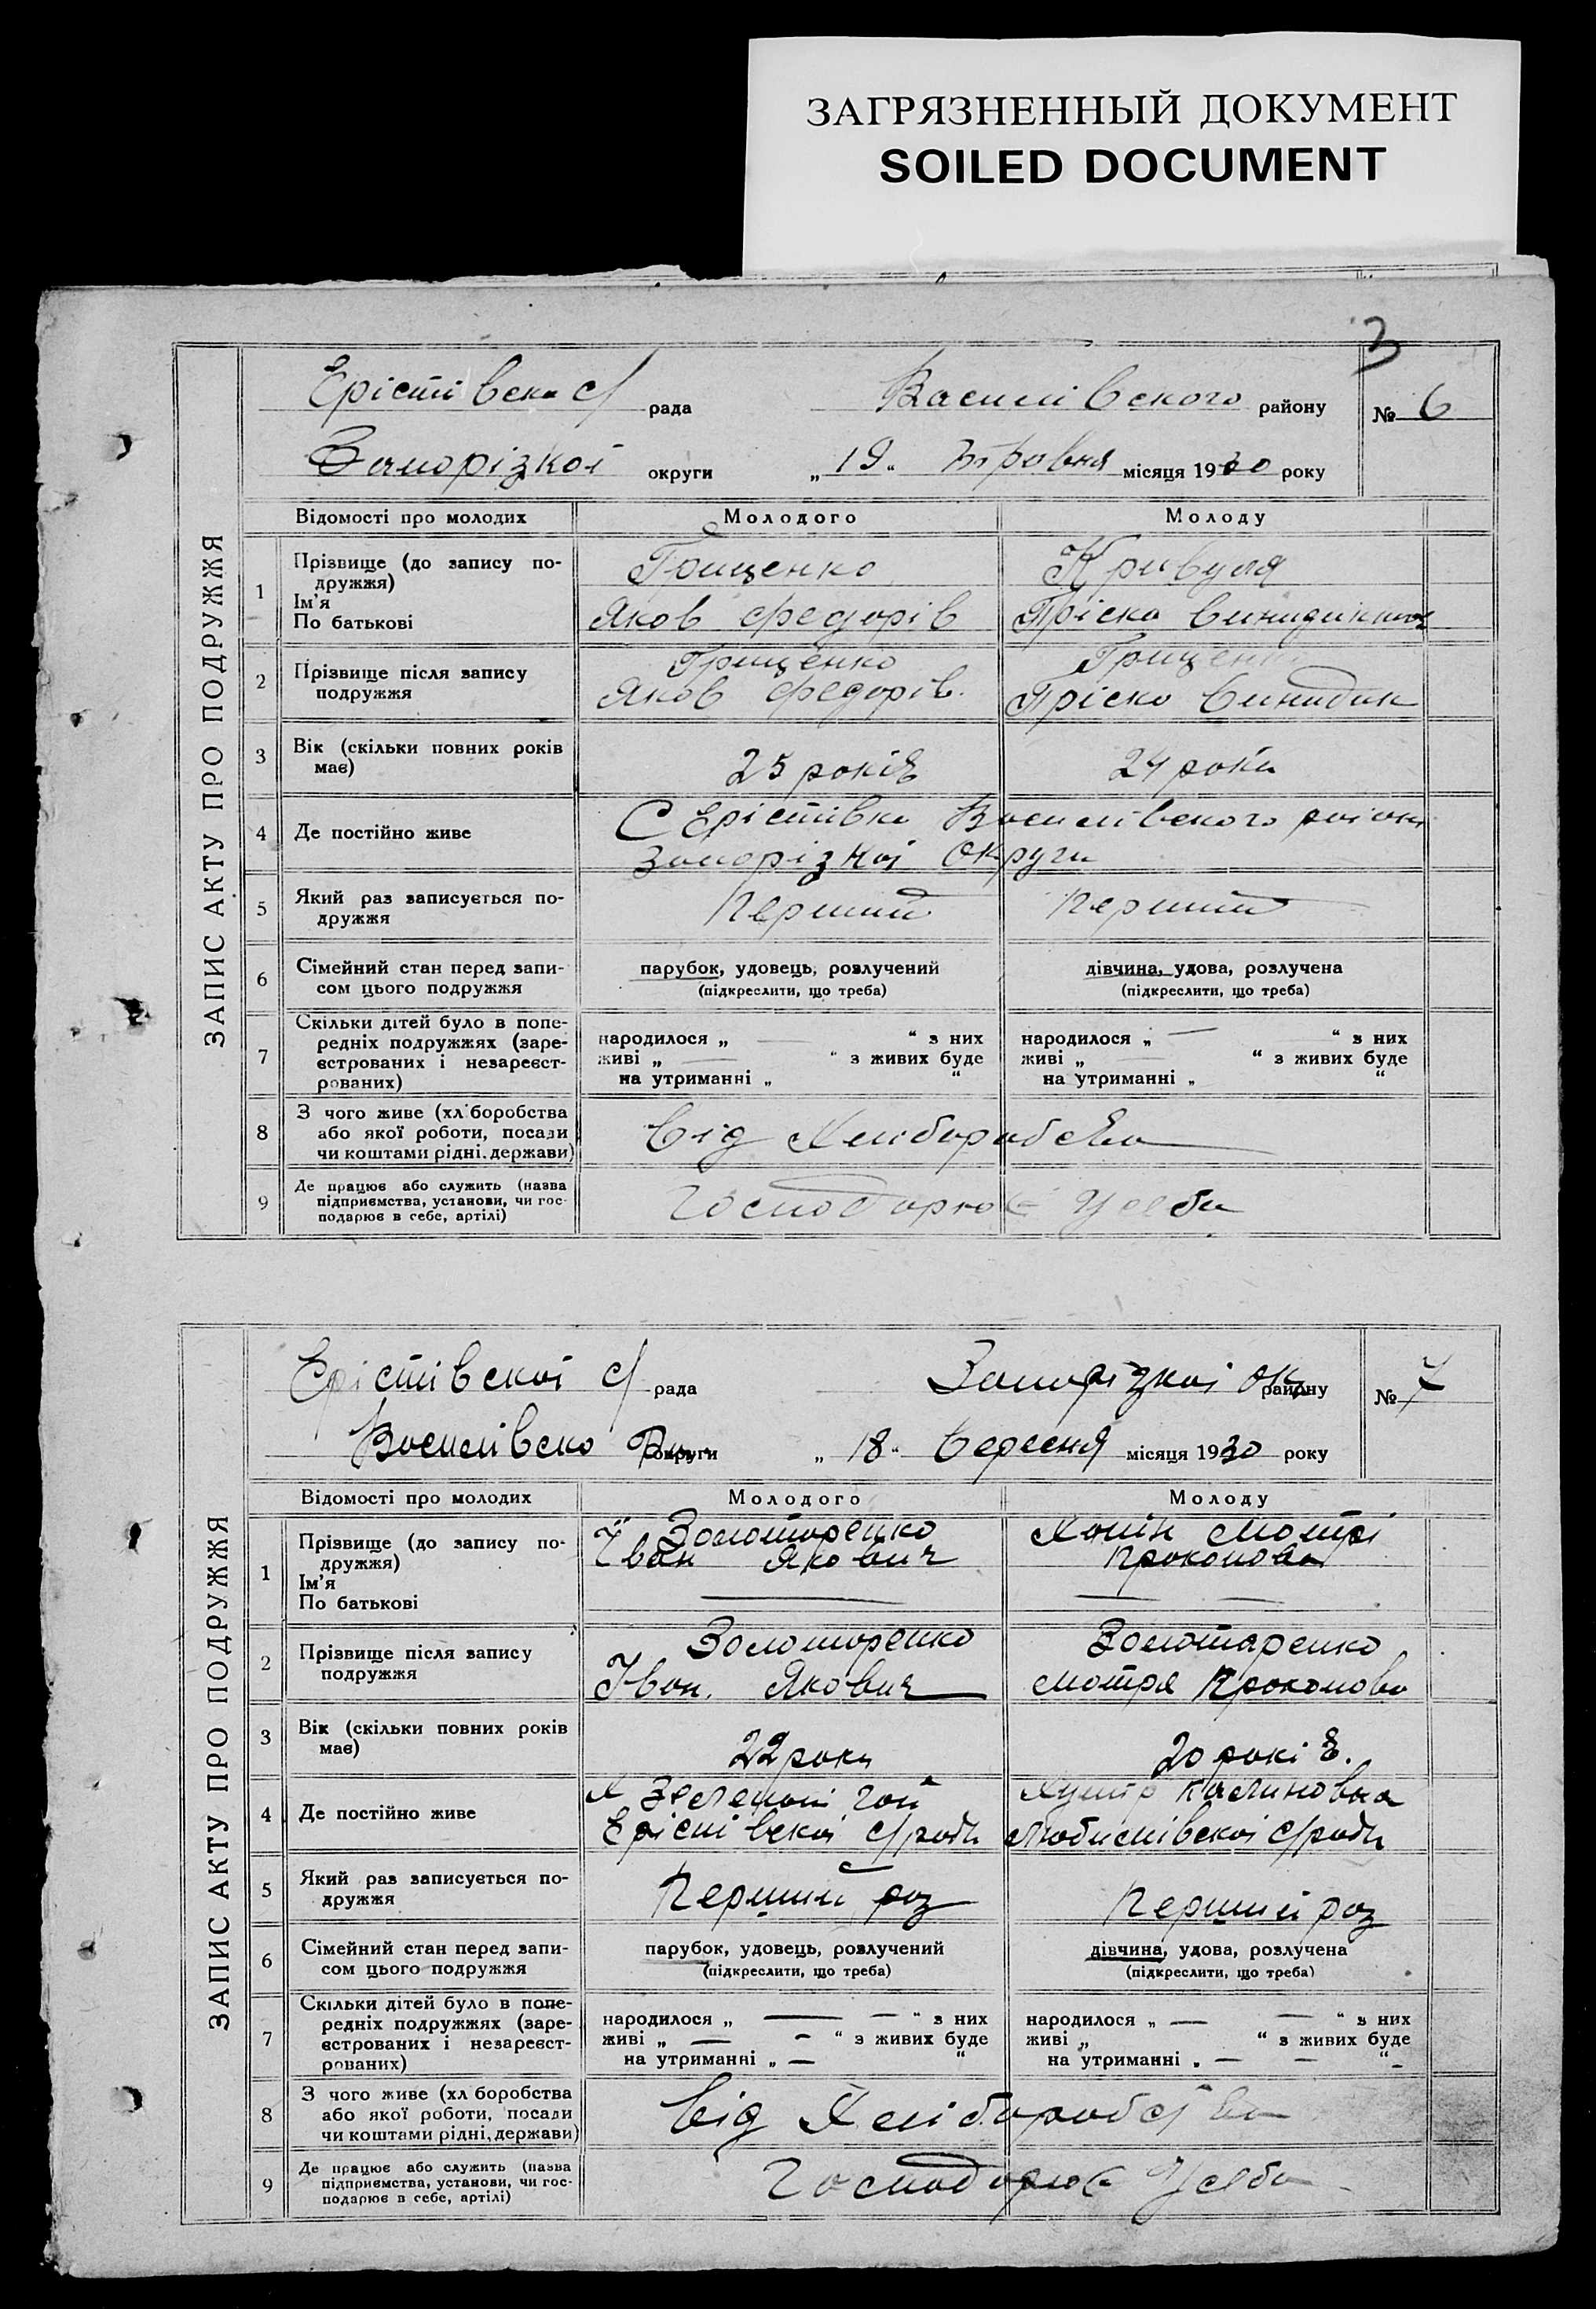 ЗАГРЯЗНЕННЫЙ ДОКУМЕНТ
SOILED DOCUMENT
3
ЗАПИС АКТУ ПРО ПОДРУЖЖЯ
Ерістівска с/ рада Василівского району № 6
Запорізкоі округи „ 19 “ місяця 1930 року
Відомості про молодих Молодого Молоду
1 Прізвище (до запису по-
дружжя)
Ім'я
По батькові
Грищенко Кривуля
Яков Федорів Пріска
2 Прізвище після запису
подружжя
Грищенко Грищенко
Яков Федорів. Пріска
3 Вік (скільки повних років
має)
25 років 24 роки
4 Де постійно живе
С Ерістівка Василівского
Запорізкоі Округи
5 Який раз записується по-
дружжя
Перший Перший
6 Сімейний стан перед запи-
сом цього подружжя
парубок, удовець, розлучений дівчина, удова, розлучена
(підкреслити, що треба) (підкреслити, що треба)
7 Скільки дітей було в попе-
редніх подружжях (заре-
єстрованих і незареєст-
рованих)
народилося „ — “ з них народилося „ — “ з них
живі „ — “ з живих буде живі „ — “ з живих буде
на утриманні „ “ на утриманні „ “
8 З чого живе (хл боробства
або якої роботи, посади
чи коштами рідні. держави)
від Хліборобства
9 Де працює або служить (назва
підприємства, установи, чи гос-
подарює в себе, артілі)
Господарює у себи
ЗАПИС АКТУ ПРО ПОДРУЖЖЯ
Ерістівскоі с/ рада Запорізкоі Ок району № 7
Василівско округи „ 18 “ Вересня місяця 1930 року
Відомості про молодих Молодого Молоду
1 Прізвище (до запису по-
дружжя)
Ім'я
По батькові
Золотаренко Мотрі
Іван Якович Прокопова
— — —
2 Прізвище після запису
подружжя
Золотаренко Золотаренко
Іван. Якович Мотря Прокопова
3 Вік (скільки повних років
має)
22 роки 20 років.
4 Де постійно живе
х Зелений гай Хутір Калиновка
Ерістівскоі с/ради Любимівскоі с/ради
5 Який раз записується по-
дружжя
Перший раз Перший раз
6 Сімейний стан перед запи-
сом цього подружжя
парубок, удовець, розлучений дівчина, удова, розлучена
(підкреслити, що треба) (підкреслити, що треба)
7 Скільки дітей було в попе-
редніх подружжях (заре-
єстрованих і незареєст-
рованих)
народилося „ — — “ з них народилося „ — — “ з них
живі „ — - “ з живих буде живі „ “ з живих буде
на утриманні „ — “ на утриманні „ — — “
8 З чого живе (хл боробства
або якої роботи, посади
чи коштами рідні, держави)
від Хліборобства
9 Де працює або служить (назва
підприємства, установи, чи гос-
подарює в себе, артілі)
Господарює у себа